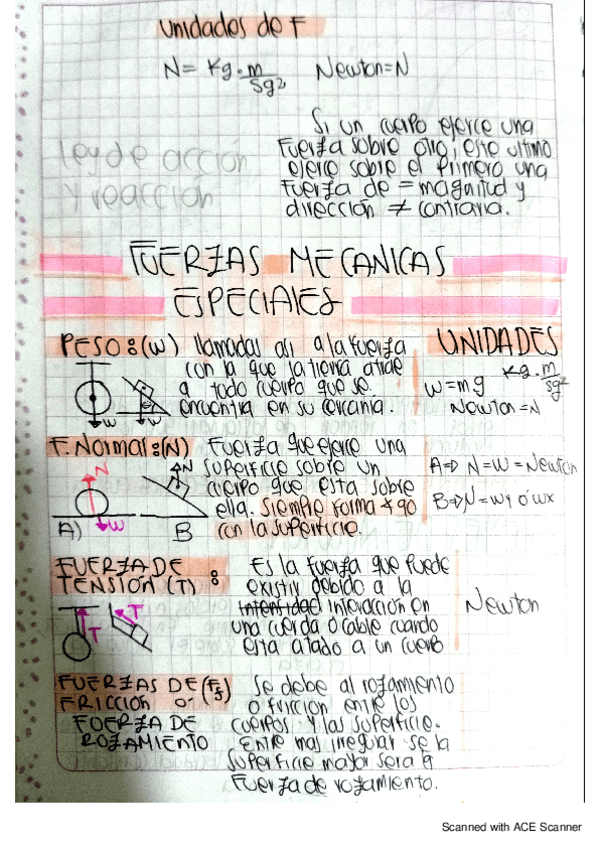 Unidades de F
N = Kg · m/sg² Newton=N
Ley de acción
y reacción
Si un cuerpo ejerce una
fuerza sobre otro, este ultimo
ejerce sobre el primero una
fuerza de = magnitud y
dirección ≠ contraria.
FUERZAS MECANICAS
ESPECIALES
PESO:(W) llamadas asi a la fuerza
con la que la tierra atrae
a todo cuerpo que se
encuentra en su cercania.
UNIDADES
W=mg Kg·m/sg²
Newton=N
W W
F. Normal:(N) Fuerza que ejerce una
superficie sobre un
cuerpo que esta sobre
ella. Siempre forma ∡ 90
con la superficie.
N N
W
A) B
A⇒ N=W=Newton
B⇒N=Wy ó Wx
FUERZA DE
TENSIÓN (T):
Es la fuerza que puede
existir debido a la
intensidad interacción en
una cuerda o cable cuando
esta atado a un cuerpo
T T
Newton
FUERZAS DE (Fs)
FRICCION o
FUERZA DE
ROZAMIENTO
Se debe al rozamiento
o friccion entre los
cuerpos y las superficie.
Entre mas irregular se la
superficie mayor sera la
fuerza de rozamiento.
Scanned with ACE Scanner